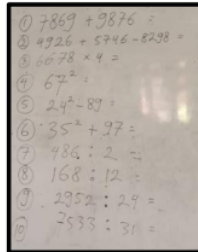 ① 7869 + 9876 =
② 4926 + 5746 - 8298 =
③ 6678 × 4 =
④ 67² =
⑤ 24² - 89 =
⑥ 35² + 97 =
⑦ 486 : 2 =
⑧ 168 : 12 =
⑨ 2952 : 24 =
⑩ 7533 : 31 =